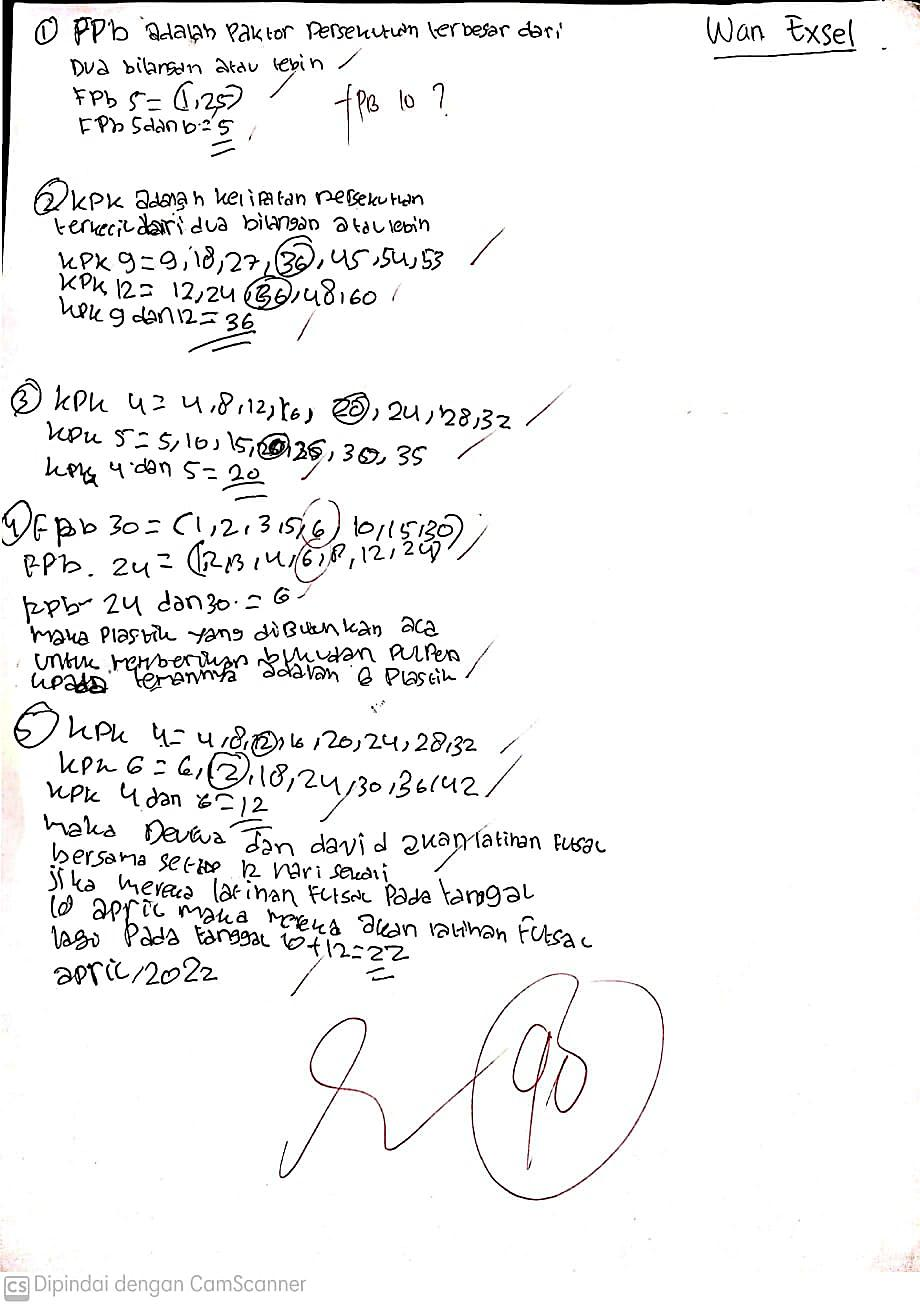 ① FPb adalah Paktor Persekutuan terbesar dari
Wan Exsel
Dua bilangan atau lebih
FPb 5 = (1,25)
fPB 10 ?
FPb 5 dan b = 5
② KPK adalah kelipatan persekutuan
terkecil dari dua bilangan atau lebih
KPK 9 = 9,18,27,36,45,54,53
KPK 12 = 12,24,36,48,60
KPK 9 dan 12 = 36
③ KPK 4 = 4,8,12,16, 20, 24, 28,32
KPK 5 = 5,10,15,20,25, 30, 35
KPK 4 dan 5 = 20
4 FPb 30 = (1,2,3,5,6, 10,15,30)
FPb. 24 = (1,2,3,4,6,8,12,24)
FPb 24 dan 30. = 6
maka Plastik yang diButuhkan aca
untuk memberikan buku dan PulPen
kpada temannya adalah 6 Plastik
⑤ KPK 4 = 4,8,12,16,20,24,28,32
KPK 6 = 6,12,18,24,30,36,42
KPK 4 dan 6 = 12
maka dan david akan latihan Futsal
bersama setiap 12 hari sekali
jika mereka latihan Futsal Pada tanggal
10 april maka mereka akan latihan Futsal
lagi Pada tanggal 10+12=22
april 2022
90
CS Dipindai dengan CamScanner